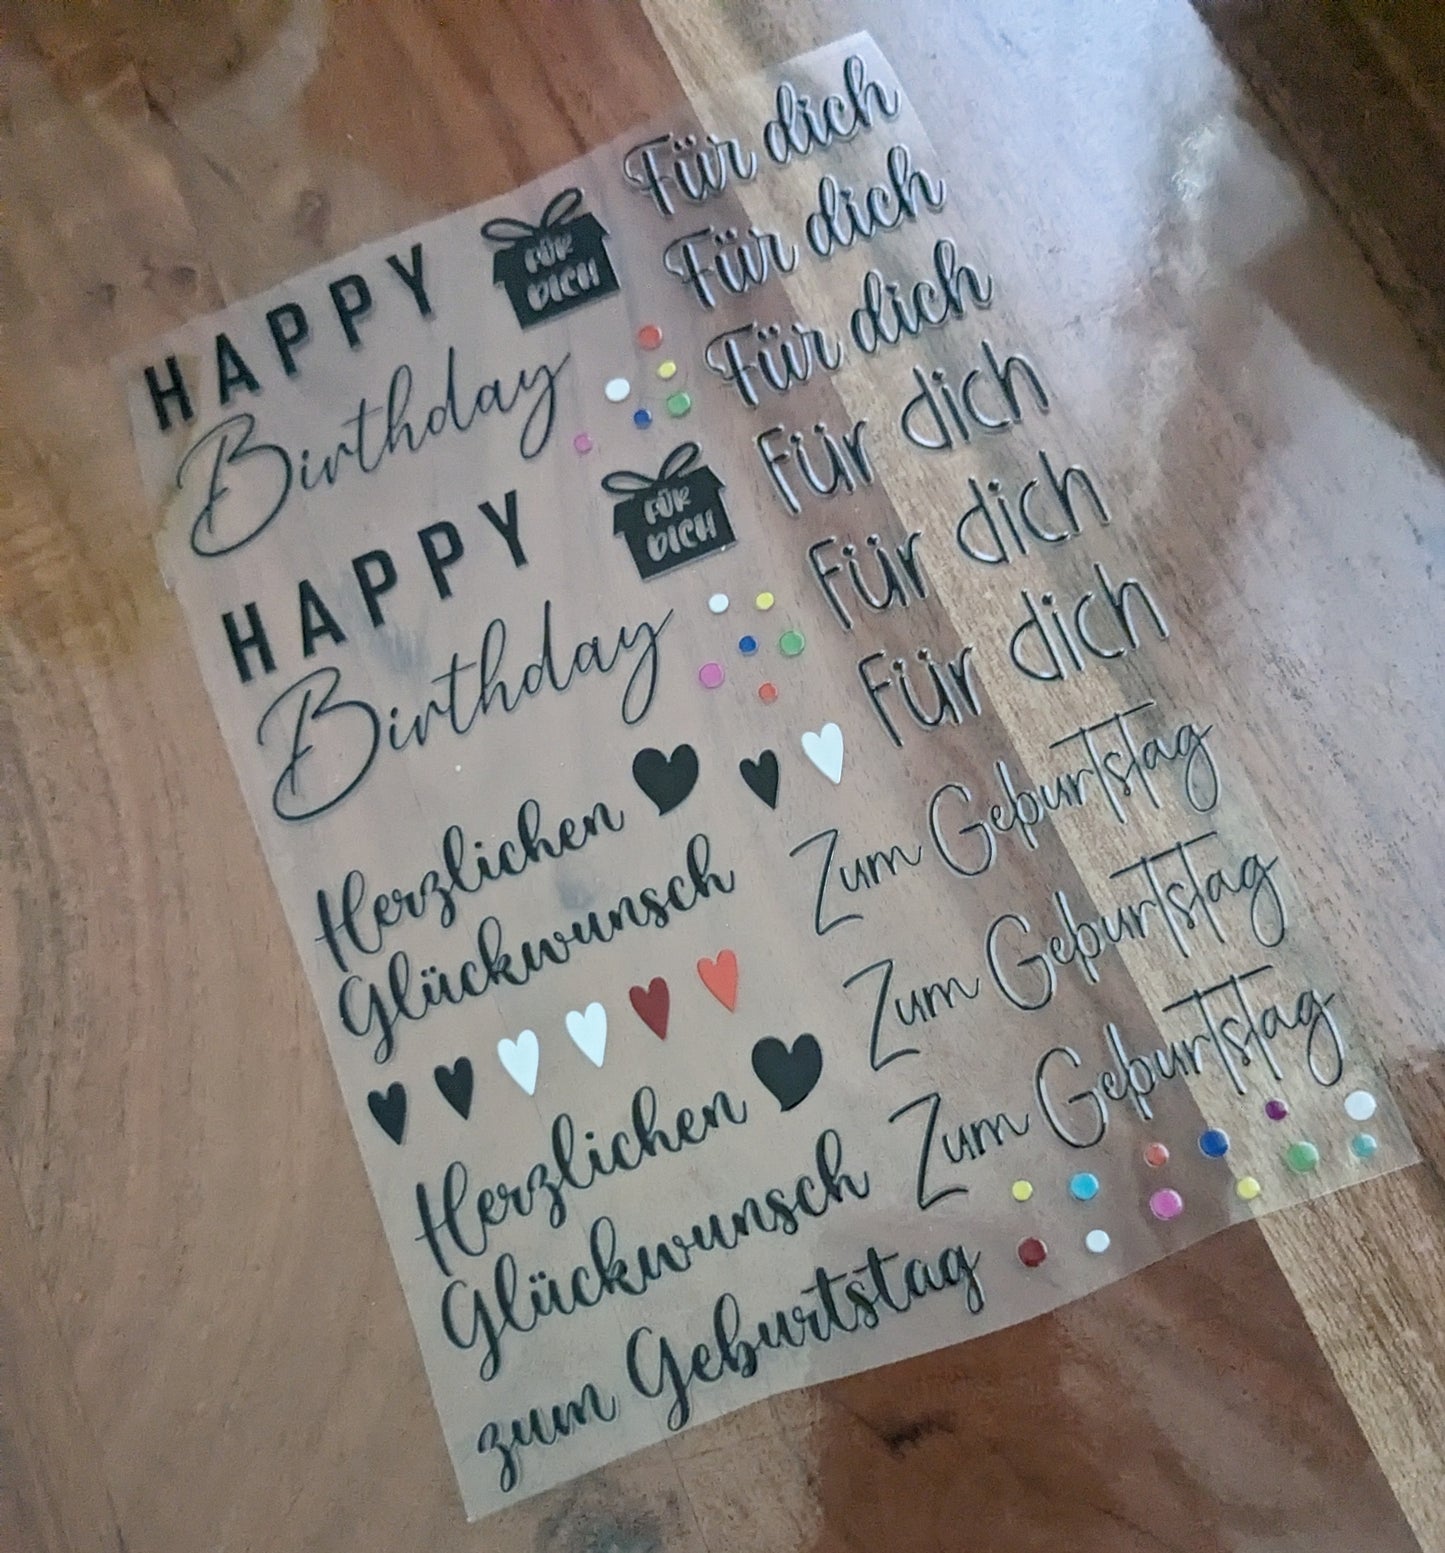 HAPPY
Birthday
FÜR
DICH
HAPPY
Birthday
FÜR
DICH
Herzlichen
Glückwunsch
Herzlichen
Glückwunsch
zum Geburtstag
Für dich
Für dich
Für dich
Für dich
Für dich
Für dich
Zum Geburtstag
Zum Geburtstag
Zum Geburtstag